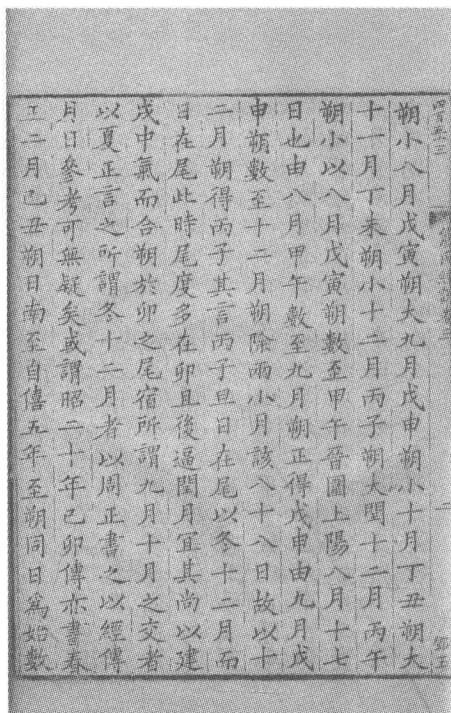 朔小八月戊寅朔大九月戊申朔小十月丁丑朔大
十一月丁未朔小十二月丙子朔大閏十二月丙午
朔小以八月戊寅朔數至甲午晉圍上陽八月十七
日也由八月甲午數至九月朔正得戊申由九月戊
申朔數至十二月朔除兩小月該八十八日故以十
二月朔得丙子其言丙子旦日在尾以冬十二月而
日在尾此時尾度多在卯且後逼閏月宜其尚以建
戌中氣而合朔於卯之尾宿所謂九月十月之交者
以夏正言之所謂冬十二月者以周正書之以經傳
月日參考可無疑矣或謂昭二十年己卯傳亦書春
王二月己丑朔日南至自僖五年至朔同日爲始數